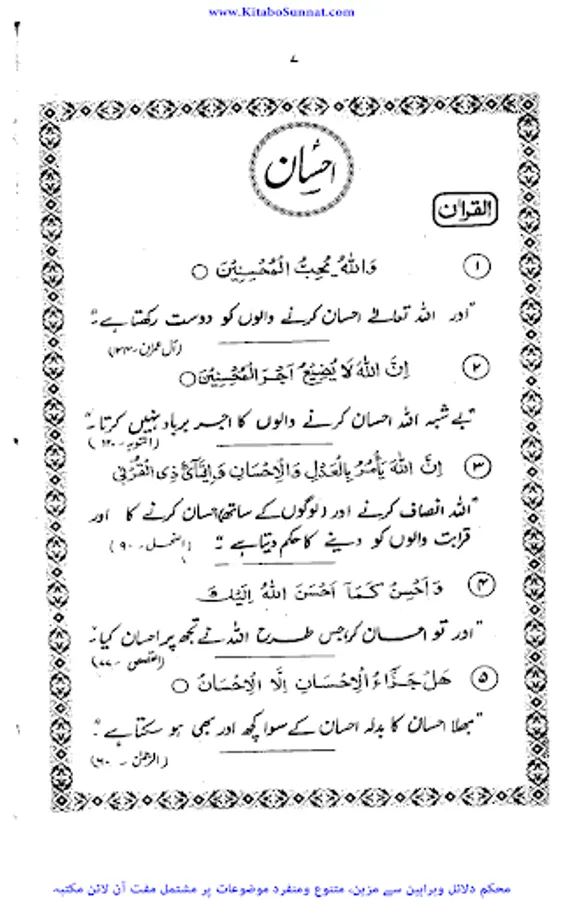 www.KitaboSunnat.com
۷
احسان
القرآن
۱ وَاللّٰهُ يُحِبُّ الْمُحْسِنِيْنَ ○
"اور اللہ تعالےٰ احسان کرنے والوں کو دوست رکھتا ہے۔"
(آل عمران - ۱۳۴)
۲ اِنَّ اللّٰهَ لَا يُضِيْعُ اَجْرَ الْمُحْسِنِيْنَ ○
"بے شبہ اللہ احسان کرنے والوں کا اجر برباد نہیں کرتا۔"
(التوبہ - ۱۲۰)
۳ اِنَّ اللّٰهَ يَاْمُرُ بِالْعَدْلِ وَالْاِحْسَانِ وَاِيْتَآئِ ذِى الْقُرْبٰى
"اللہ انصاف کرنے اور (لوگوں کے ساتھ) احسان کرنے کا اور
قرابت والوں کو دینے کا حکم دیتا ہے۔" (النحل - ۹۰)
۴ وَاَحْسِنْ كَمَآ اَحْسَنَ اللّٰهُ اِلَيْكَ
"اور تو احسان کر، جس طرح اللہ نے تجھ پر احسان کیا۔"
(القصص - ۷۷)
۵ هَلْ جَزَآءُ الْاِحْسَانِ اِلَّا الْاِحْسَانُ ○
"بھلا احسان کا بدلہ احسان کے سوا کچھ اور بھی ہو سکتا ہے۔"
(الرحمٰن - ۶۰)
محکم دلائل وبراہین سے مزین، متنوع ومنفرد موضوعات پر مشتمل مفت آن لائن مکتبہ